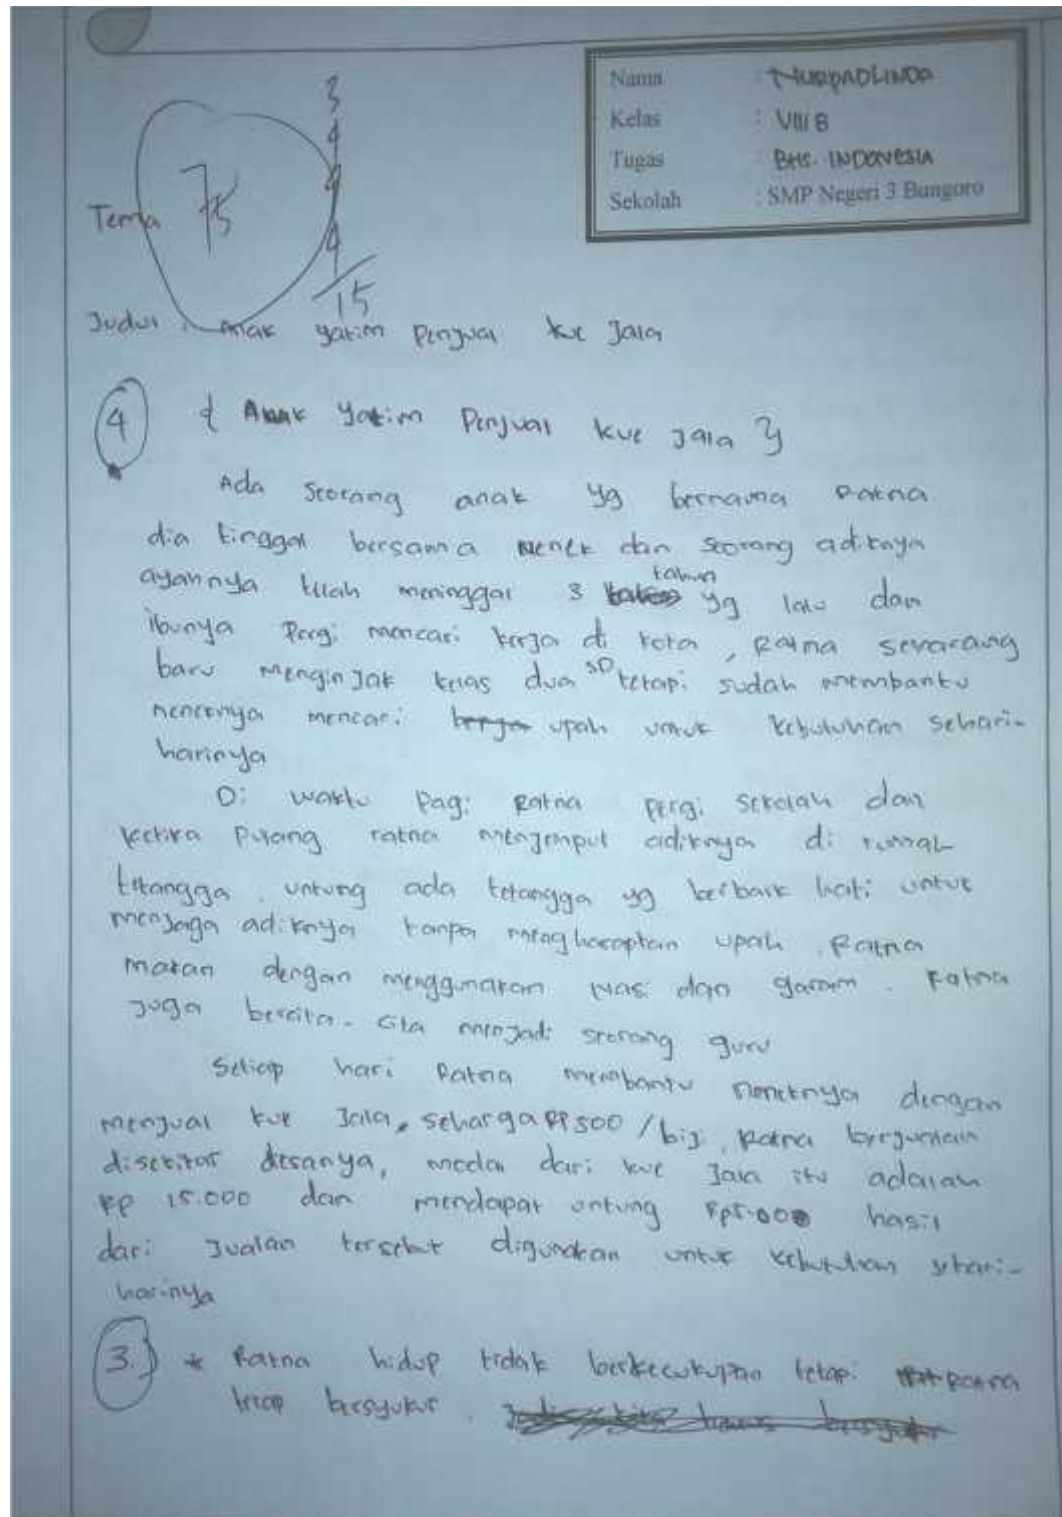 Nama : NURPADLINDA
Kelas : VIII B
Tugas : BHS. INDONESIA
Sekolah : SMP Negeri 3 Bungoro
3
4
4
4
15
75
Tema
Judul : Anak yatim Penjual kue Jala
4
{ Anak Yatim Penjual kue Jala }
Ada seorang anak yg bernama Ratna
dia tinggal bersama nenek dan seorang adiknya
ayahnya telah meninggal 3 tahun yg lalu dan
ibunya Pergi mencari kerja di kota, Ratna sekarang
baru menginjak kelas dua SD tetapi sudah membantu
neneknya mencari upah untuk kebutuhan sehari-
harinya
Di waktu Pagi Ratna pergi sekolah dan
ketika pulang ratna menjemput adiknya di rumah
tetangga. untung ada tetangga yg berbaik hati untuk
menjaga adiknya tanpa mengharapkan upah. Ratna
makan dengan menggunakan nasi dan garam. Ratna
Juga bercita-cita menjadi seorang guru
Setiap hari Ratna membantu neneknya dengan
menjual kue Jala, seharga RP 500 /biji, Ratna
disekitar desanya, modal dari kue Jala itu adalah
RP 15.000 dan mendapat untung Rp5.000 hasil
dari Jualan tersebut digunakan untuk kebutuhan sehari-
harinya
3. * Ratna hidup tidak berkecukupan tetapi Ratna
tetap bersyukur.